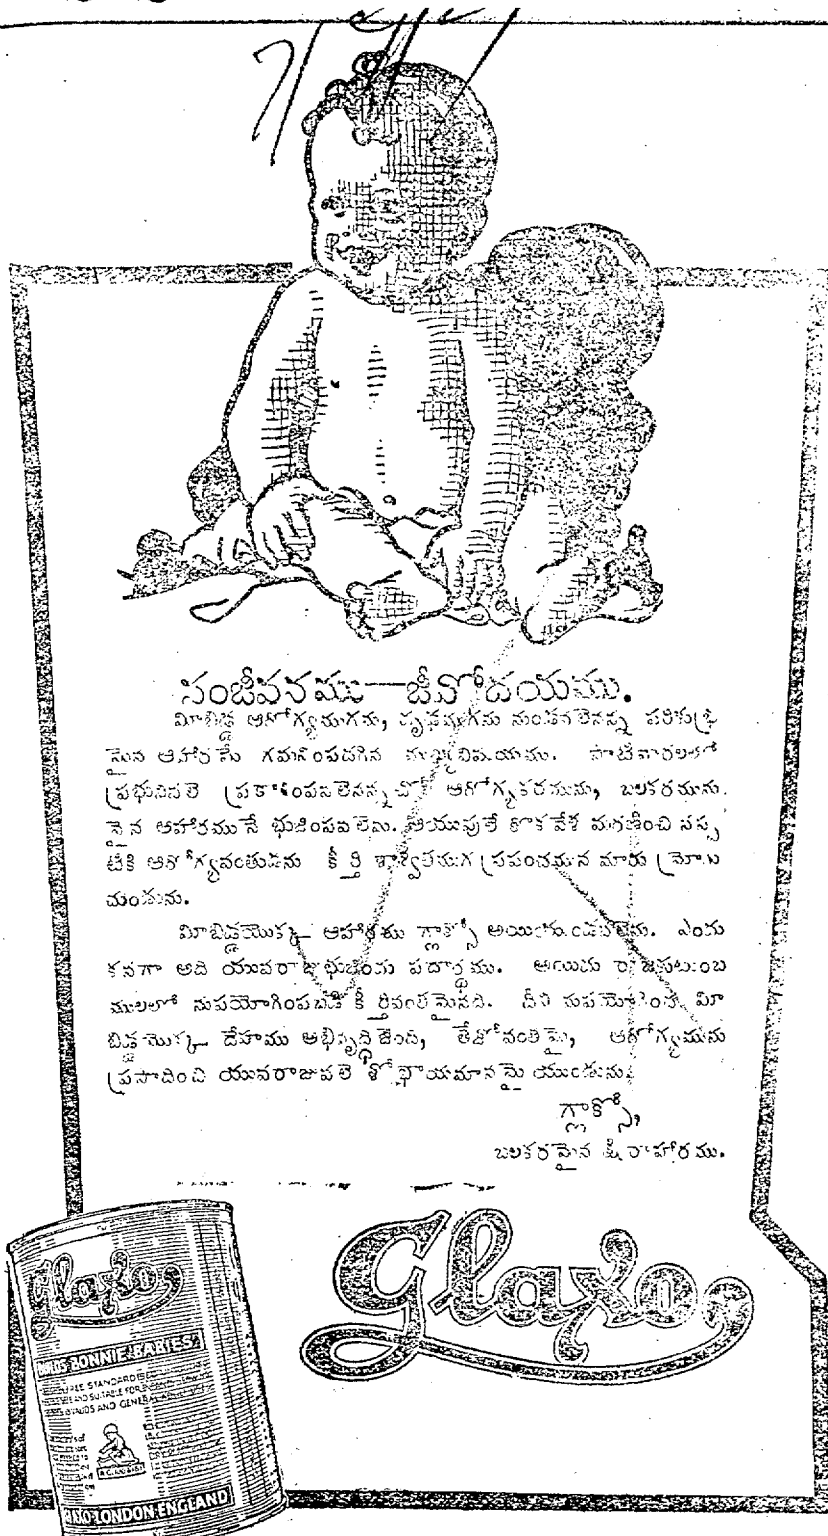 సంజీవనము—జీవోదయము.
మీబిడ్డ ఆరోగ్యముగను, దృఢముగను నుండవలెనన్న పరిశుభ్ర
మైన ఆహారమే గమనింపదగిన ముఖ్యవిషయము. సాటివారలలో
ప్రభునివలె ప్రకాశింపవలెనన్నచో ఆరోగ్యకరమును, బలకరమును
నైన ఆహారమునే భుజింపవలెను. ఆయువులే కొకవేళ మరణించి నప్ప
టికి ఆరోగ్యవంతుడను కీర్తి శాశ్వితముగ ప్రపంచమున మారు మ్రోగు
చుండును.
మీబిడ్డయొక్క ఆహారము గ్లాక్సో అయియుండవలెను. ఎందు
కనగా అది యువరాజు భుజించు పదార్థము. అయిదు రాజకుటుంబ
ములలో నుపయోగింపబడి కీర్తివంతమైనది. దీని నుపయోగించిన మీ
బిడ్డయొక్క దేహము అభివృద్ధిజెంది, తేజోవంతమై, ఆరోగ్యమును
ప్రసాదించి యువరాజువలె శోభాయమానమై యుండును.
గ్లాక్సో,
బలకరమైన క్షీరాహారము.
Glaxo
Glaxo
BONNIE BABIES
STANDARD
AND SUITABLE FOR
AND
LONDON ENGLAND